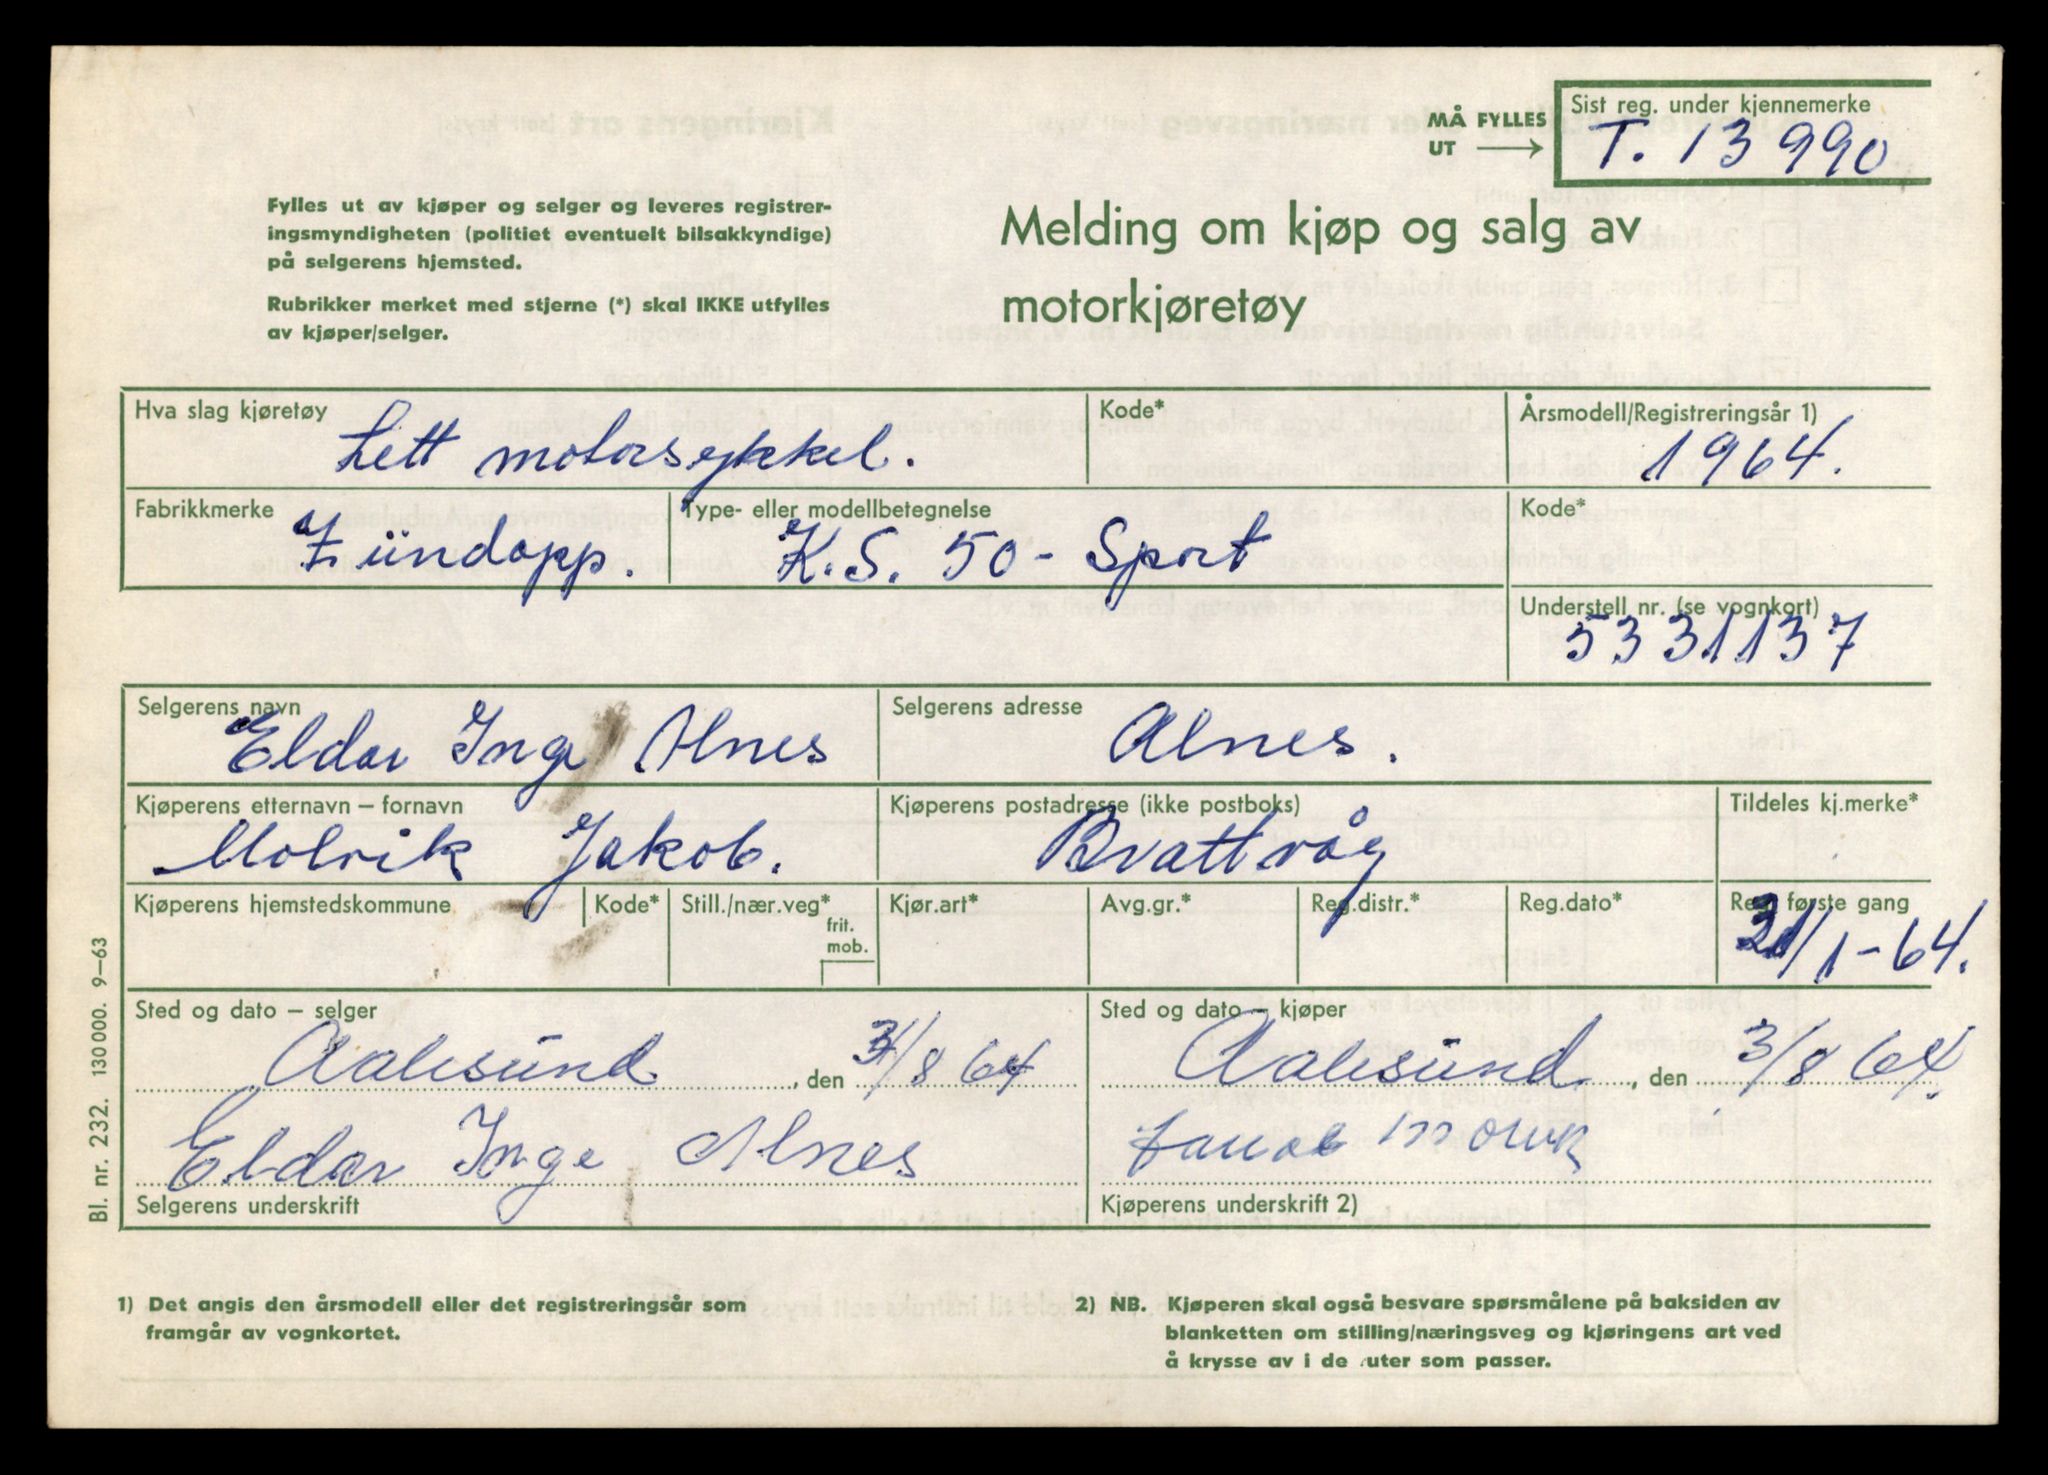 MÅ FYLLES UT →
Sist reg. under kjennemerke
T. 13990
Fylles ut av kjøper og selger og leveres registrer-
ingsmyndigheten (politiet eventuelt bilsakkyndige)
på selgerens hjemsted.
Rubrikker merket med stjerne (*) skal IKKE utfylles
av kjøper/selger.
Melding om kjøp og salg av
motorkjøretøy
Hva slag kjøretøy
Lett motorsykkel.
Kode*
Årsmodell/Registreringsår 1)
1964.
Fabrikkmerke
Zündapp.
Type- eller modellbetegnelse
K.S. 50 - Sport
Kode*
Understell nr. (se vognkort)
5331137
Selgerens navn
Eldar Inge Alnes
Selgerens adresse
Alnes.
Kjøperens etternavn – fornavn
Molvik Jakob.
Kjøperens postadresse (ikke postboks)
Brattvåg
Tildeles kj.merke*
Kjøperens hjemstedskommune
Kode*
Still./nær.veg*
frit.
mob.
Kjør.art*
Avg.gr.*
Reg.distr.*
Reg.dato*
Reg. første gang
/1-64.
Sted og dato – selger
Aalesund , den 3/8 64
Sted og dato – kjøper
Aalesund , den 3/8 64.
Eldar Inge Alnes
Selgerens underskrift
Kjøperens underskrift 2)
Bl. nr. 232. 130000. 9–63
1) Det angis den årsmodell eller det registreringsår som
framgår av vognkortet.
2) NB. Kjøperen skal også besvare spørsmålene på baksiden av
blanketten om stilling/næringsveg og kjøringens art ved
å krysse av i de ruter som passer.